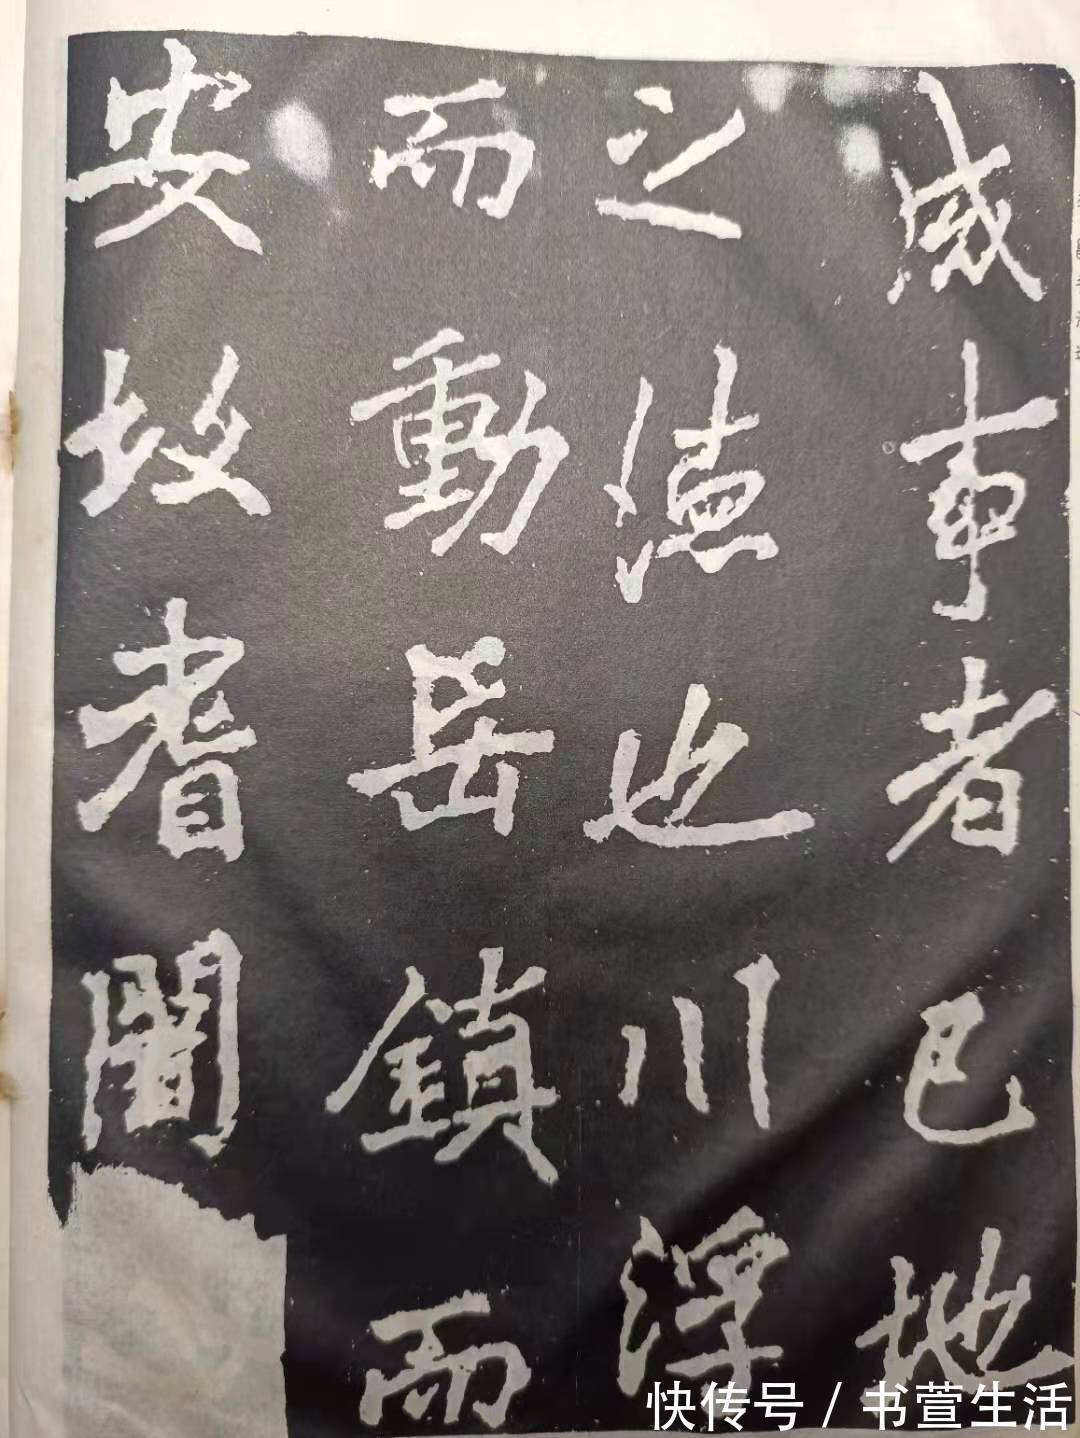 成事者已地
之德也川浮
而動岳鎮而
安故耆闍
快传号 / 书萱生活